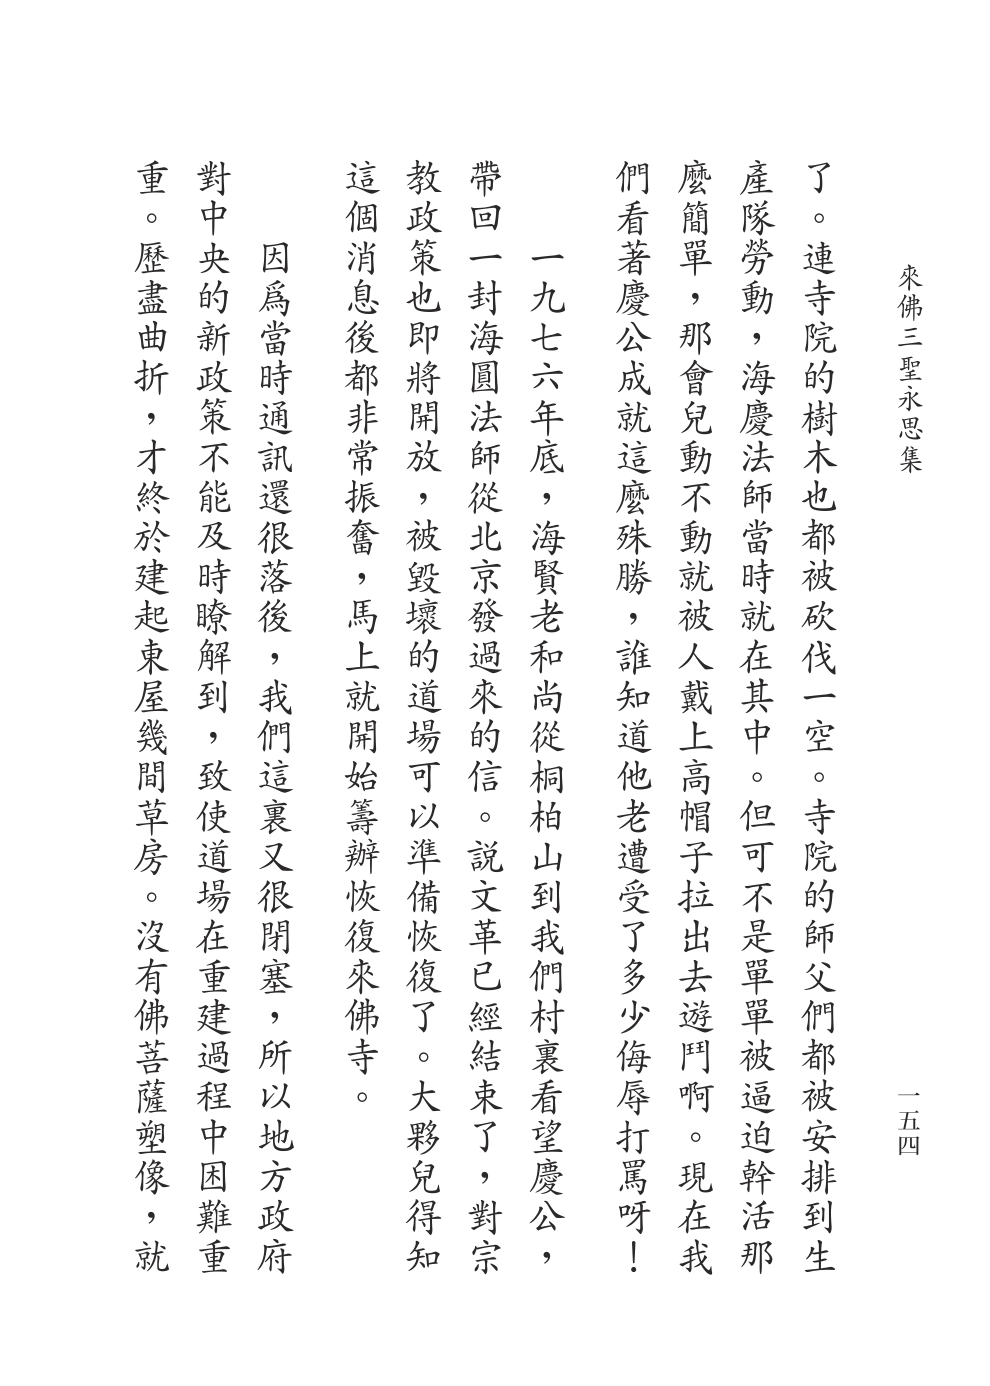 來佛三聖永思集
一五四
了。連寺院的樹木也都被砍伐一空。寺院的師父們都被安排到生
產隊勞動，海慶法師當時就在其中。但可不是單單被逼迫幹活那
麼簡單，那會兒動不動就被人戴上高帽子拉出去遊鬥啊。現在我
們看著慶公成就這麼殊勝，誰知道他老遭受了多少侮辱打罵呀！
一九七六年底，海賢老和尚從桐柏山到我們村裏看望慶公，
帶回一封海圓法師從北京發過來的信。説文革已經結束了，對宗
教政策也即將開放，被毀壞的道場可以準備恢復了。大夥兒得知
這個消息後都非常振奮，馬上就開始籌辦恢復來佛寺。
因爲當時通訊還很落後，我們這裏又很閉塞，所以地方政府
對中央的新政策不能及時瞭解到，致使道場在重建過程中困難重
重。歷盡曲折，才終於建起東屋幾間草房。沒有佛菩薩塑像，就